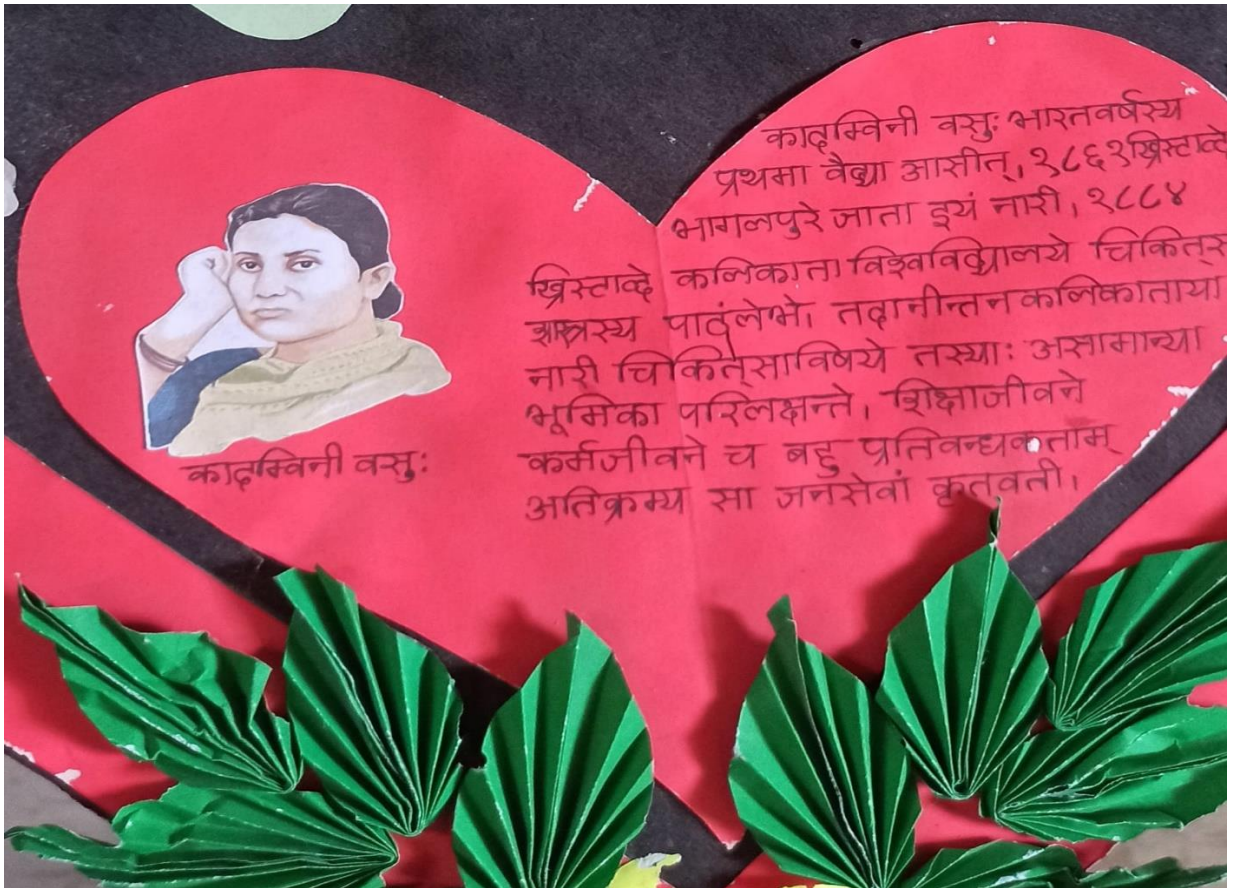 कादम्विनी वसुः भारतवर्षस्य
प्रथमा वैद्या आसीत्, १८६१ख्रिस्टाव्दे
भागलपुरे जाता इयं नारी, १८८४
ख्रिस्टाव्दे कलिकाता विश्वविद्यालये चिकित्स
शास्त्रस्य पाठंलेभे। तदानीन्तनकलिकाताया
नारी चिकित्साविषये तस्याः असामान्या
भूमिका परिलक्षन्ते, शिक्षाजीवने
कर्मजीवने च बहु प्रतिवन्धकताम्
अतिक्रम्य सा जनसेवां कृतवती।
कादम्विनी वसुः